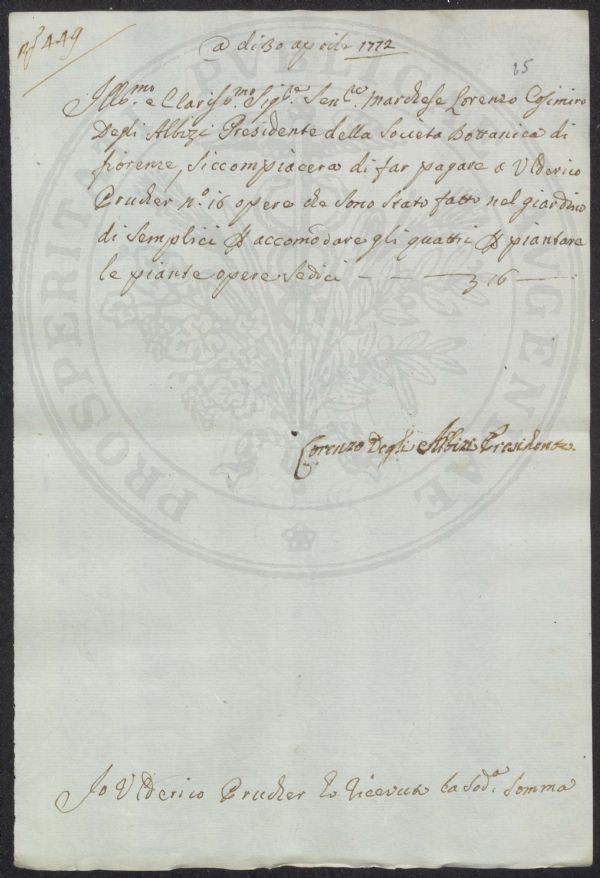 N.° 449
a di 30 aprile 1772
25
Ill.mo e Clariss.mo Sig.re Sen.re Marchese Lorenzo Cosimiro
Degli Albizi Presidente della Società Bottanica di
fiorenze, si ccompiacera di far pagare a Ulderico
Prucher n.° 16 opere che sono stato fatto nel giardino
di Semplici accomodare gli quatti piantare
le piante opere Sedici — — 16 —
Lorenzo Degli Albizi Presidente.
Jo Ulderico Prucher ho ricevuto la Sod.a Somma
PROSPERITATI PVBLICAE AVGENDAE